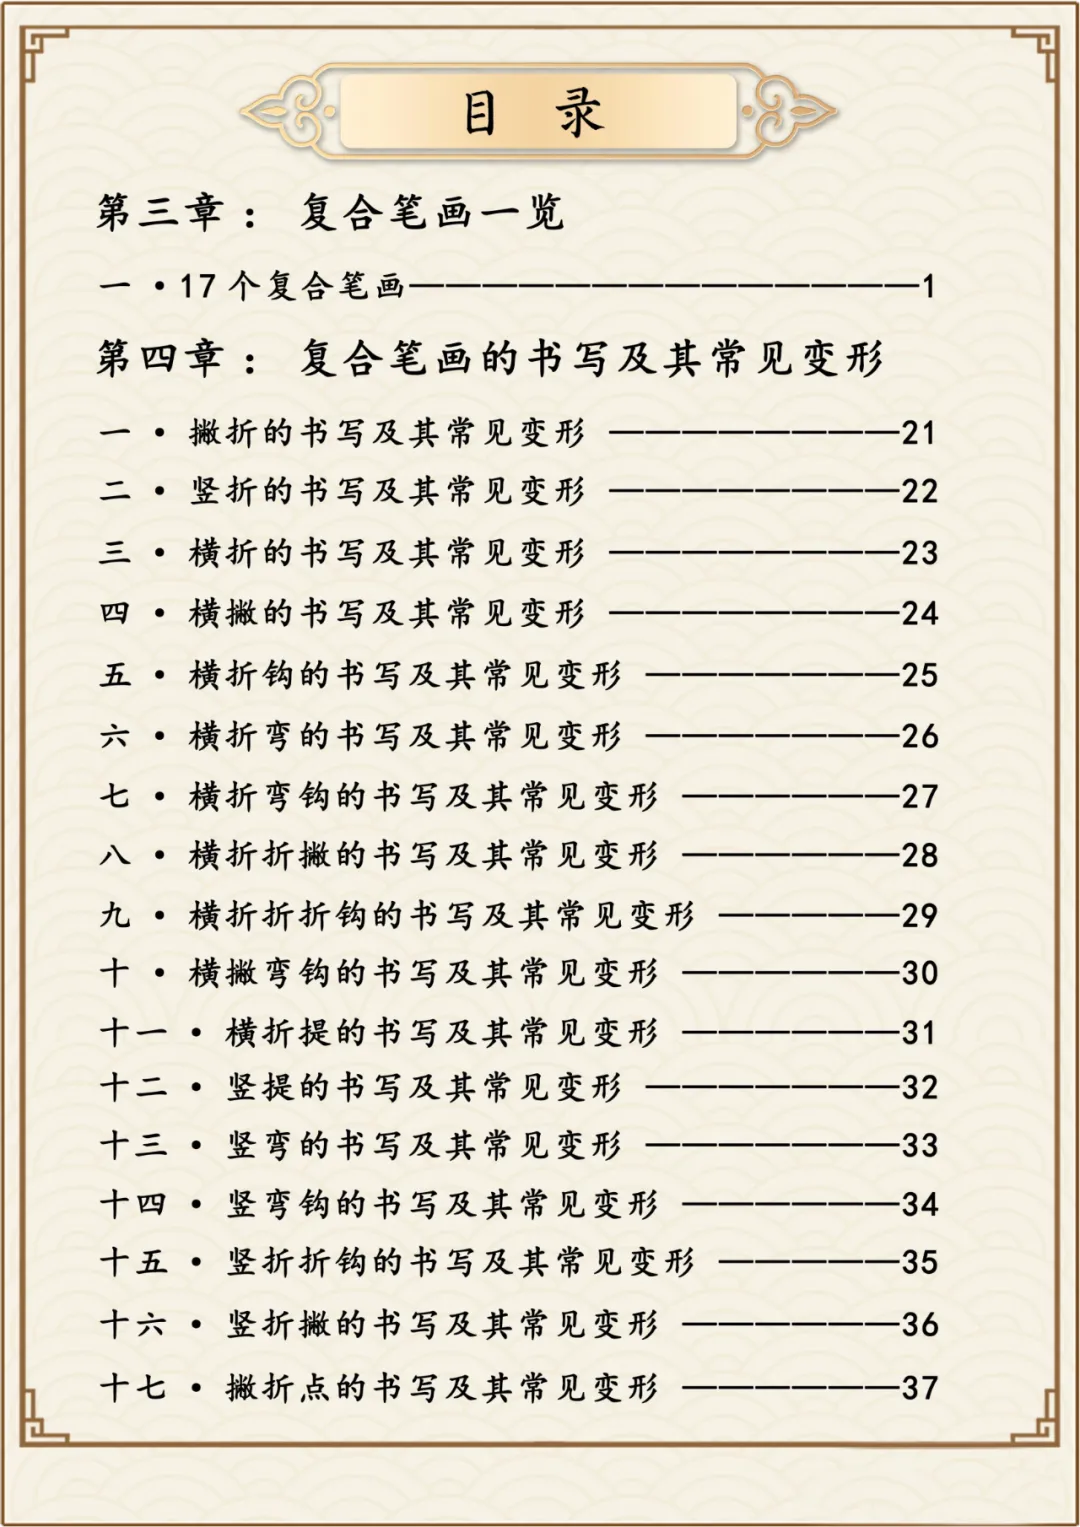 目 录
第三章： 复合笔画一览
一 • 17个复合笔画——————————————1
第四章： 复合笔画的书写及其常见变形
一 • 撇折的书写及其常见变形 ————————21
二 • 竖折的书写及其常见变形 ————————22
三 • 横折的书写及其常见变形 ————————23
四 • 横撇的书写及其常见变形 ————————24
五 • 横折钩的书写及其常见变形 ———————25
六 • 横折弯的书写及其常见变形 ———————26
七 • 横折弯钩的书写及其常见变形 ——————27
八 • 横折折撇的书写及其常见变形 ——————28
九 • 横折折折钩的书写及其常见变形 —————29
十 • 横撇弯钩的书写及其常见变形 ——————30
十一 • 横折提的书写及其常见变形 ——————31
十二 • 竖提的书写及其常见变形 ———————32
十三 • 竖弯的书写及其常见变形 ———————33
十四 • 竖弯钩的书写及其常见变形 ——————34
十五 • 竖折折钩的书写及其常见变形 —————35
十六 • 竖折撇的书写及其常见变形 ——————36
十七 • 撇折点的书写及其常见变形 ——————37